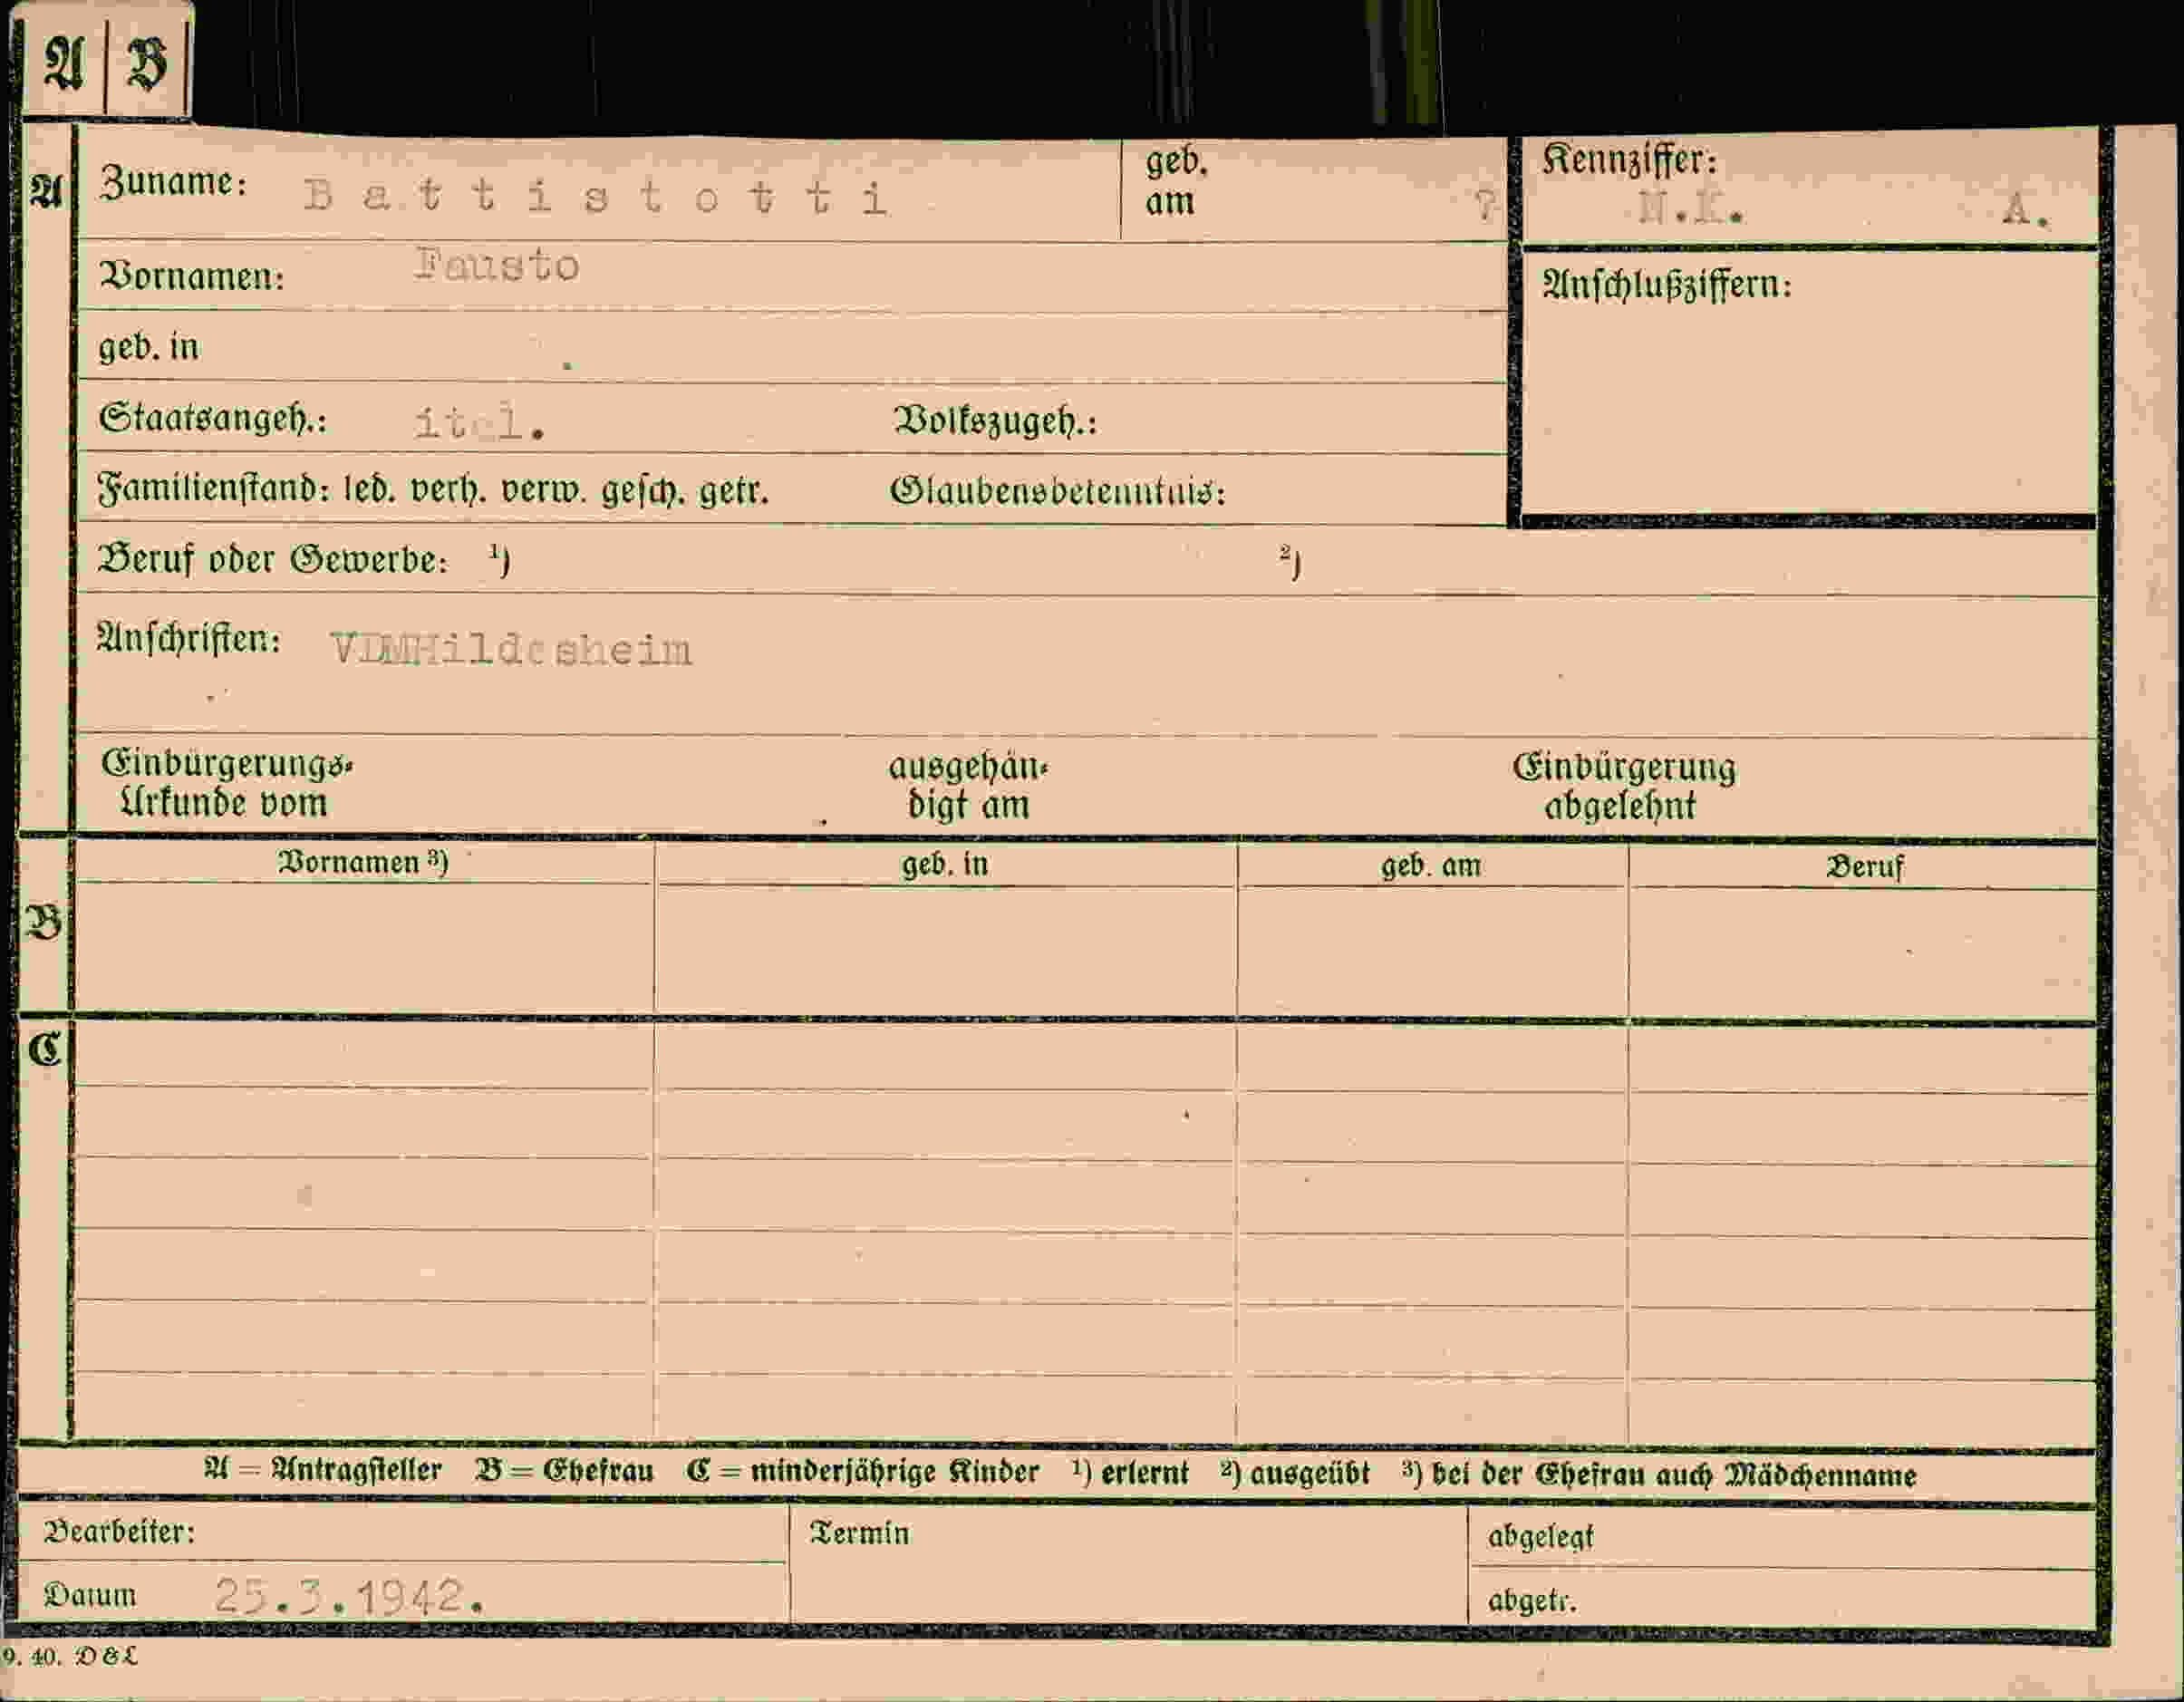 A B
A
Zuname: Battistotti geb. am ? Kennziffer: N.K. A.
Vornamen: Fausto
Anschlußziffern:
geb. in
Staatsangeh.: ital. Volkszugeh.:
Familienstand: led. verh. verw. gesch. getr. Glaubensbekenntnis:
Beruf oder Gewerbe: ¹) ²)
Anschriften: VDMHildesheim
Einbürgerungs- ausgehän- Einbürgerung
Urkunde vom digt am abgelehnt
Vornamen ³) geb. in geb. am Beruf
B
C
A = Antragsteller B = Ehefrau C = minderjährige Kinder ¹) erlernt ²) ausgeübt ³) bei der Ehefrau auch Mädchenname
Bearbeiter: Termin abgelegt
Datum 25.3.1942. abgetr.
9. 40. D&L